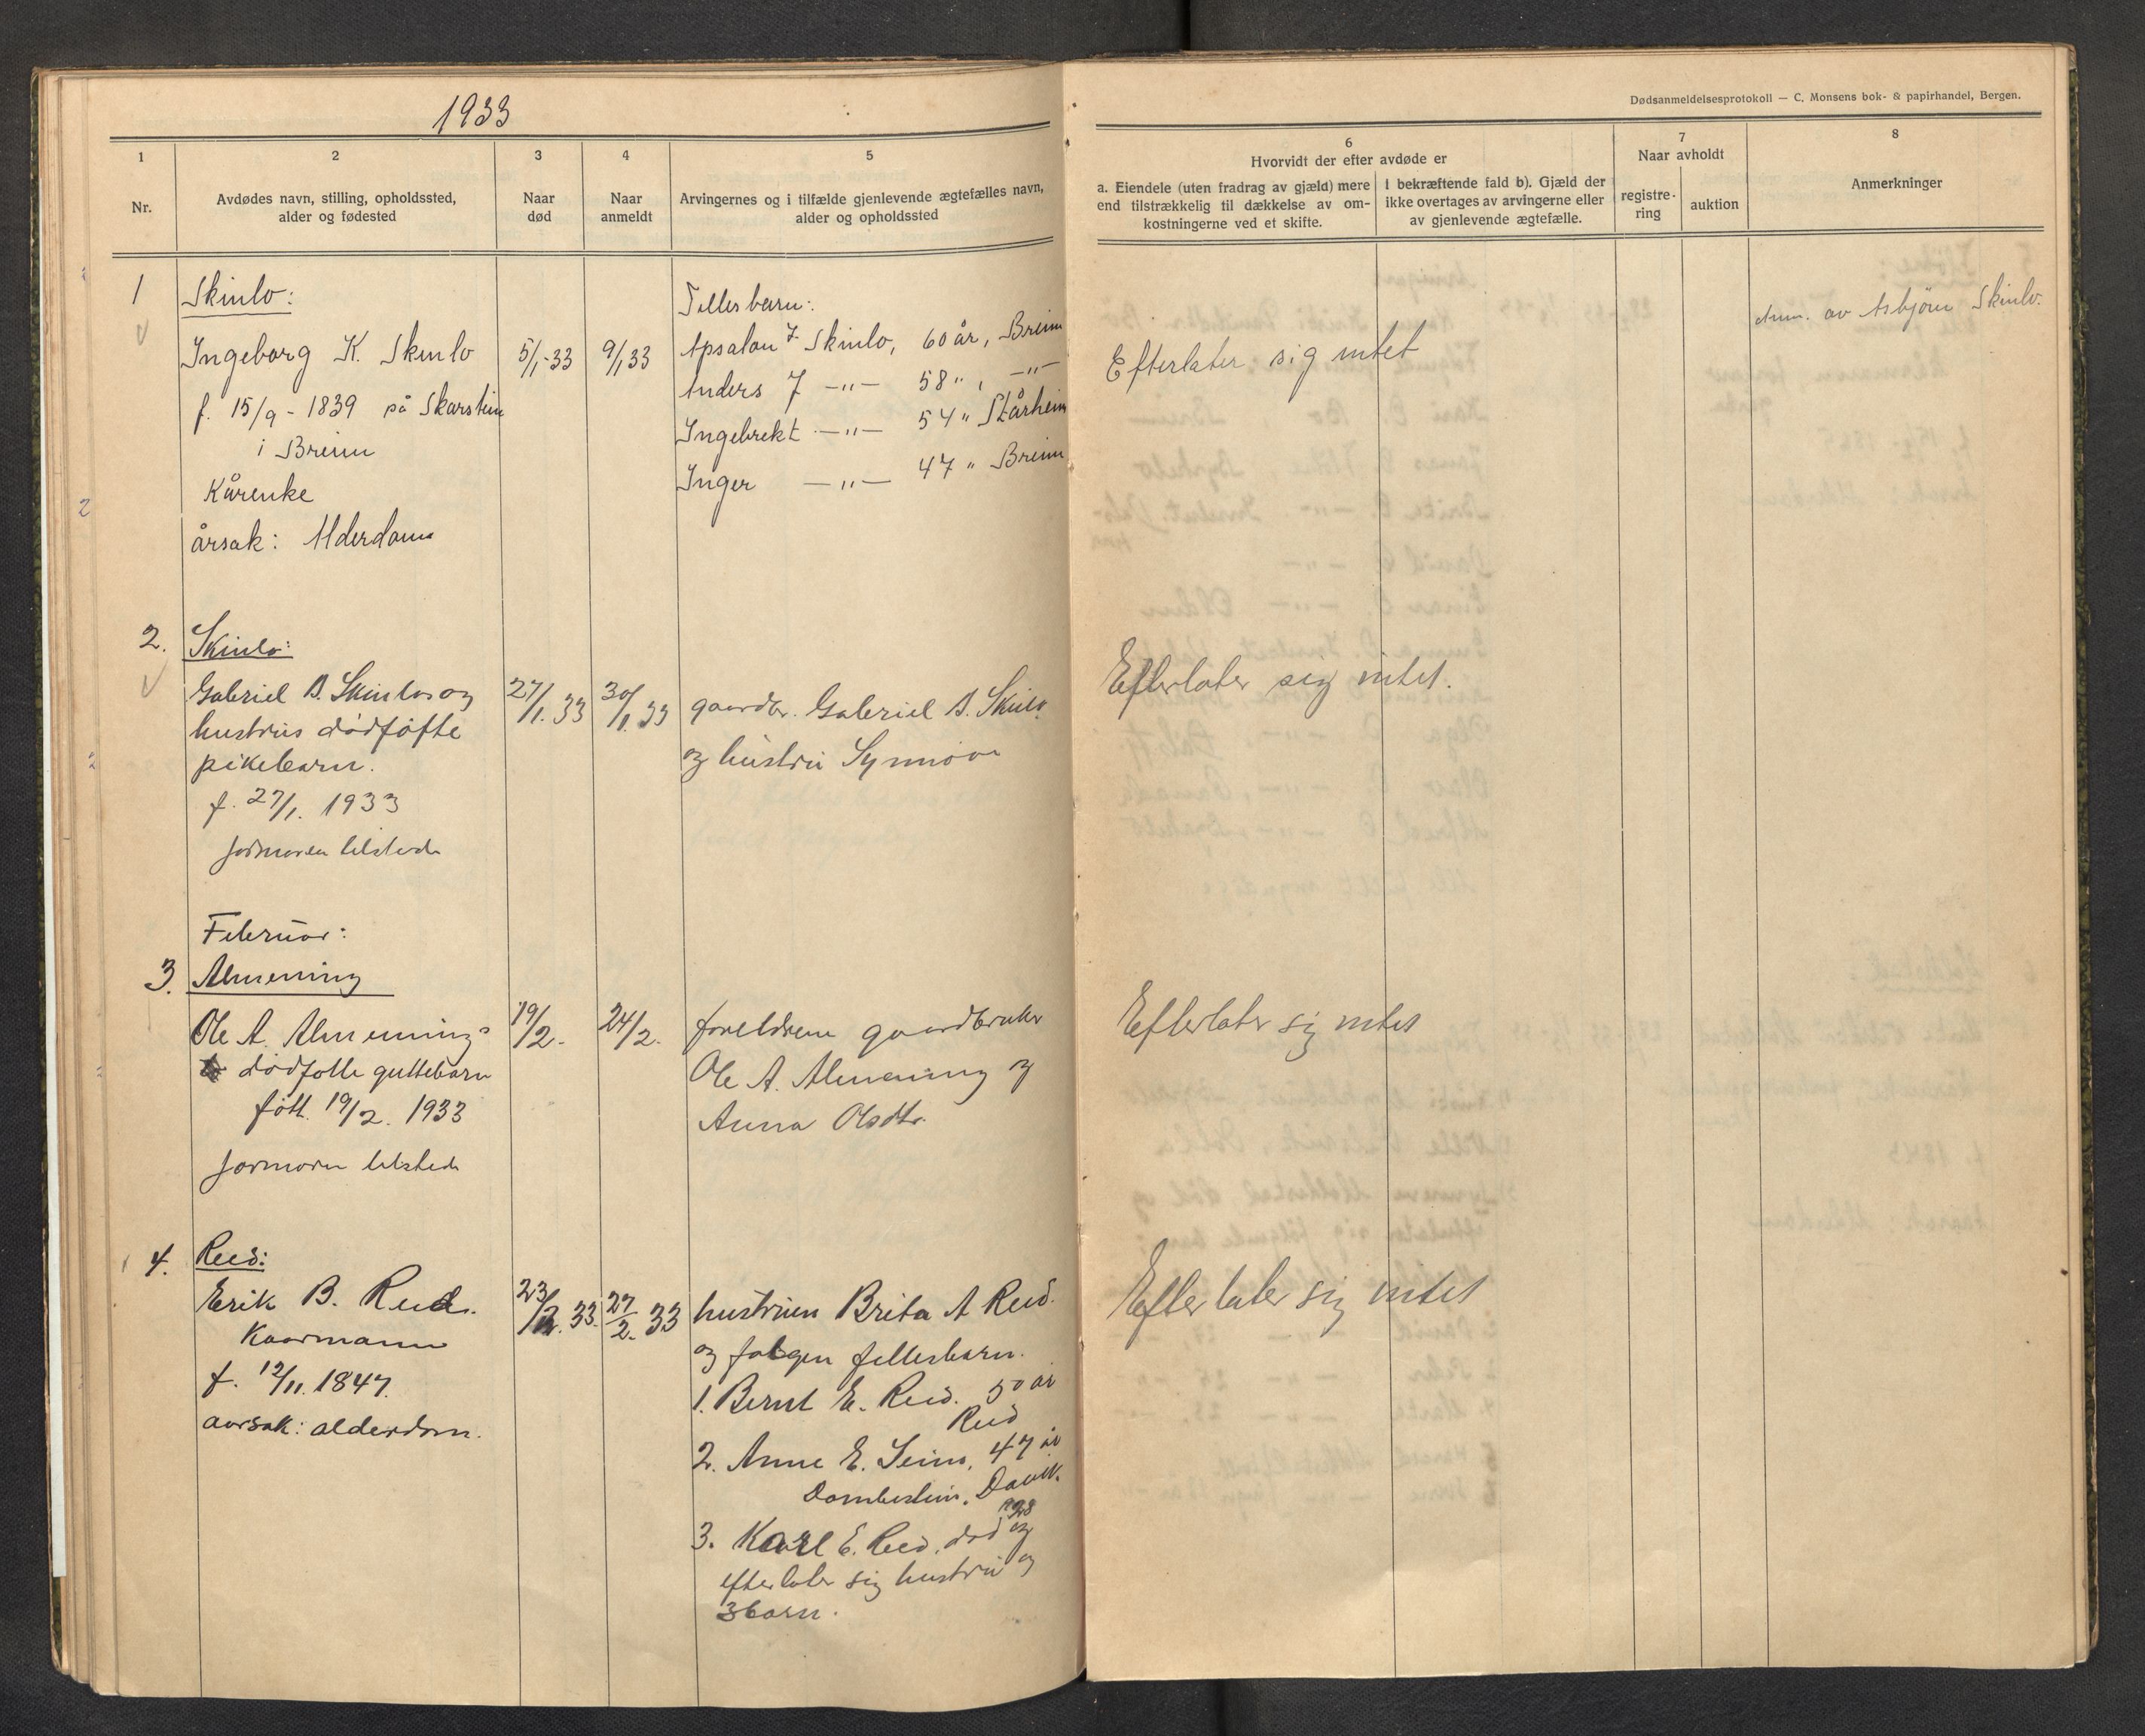 1933
Dødsanmeldelsesprotokoll — C. Monsens bok- & papirhandel, Bergen.
1
2
3
4
5
6
7
8
Nr.
Avdødes navn, stilling, opholdssted,
alder og fødested
Naar
død
Naar
anmeldt
Arvingernes og i tilfælde gjenlevende ægtefælles navn,
alder og opholdssted
Hvorvidt der efter avdøde er
a. Eiendele (uten fradrag av gjæld) mere
end tilstrækkelig til dækkelse av om-
kostningerne ved et skifte.
I bekræftende fald b). Gjæld der
ikke overtages av arvingerne eller
av gjenlevende ægtefælle.
Naar avholdt
registre-
ring
auktion
Anmerkninger
1
Skinlo:
Ingeborg K. Skinlo
f. 15/9 - 1839 på Skarstein
i Breim
Kårenke
årsak: Alderdom
5/1-33
9/1 33
Fellesbarn:
Apsalon J. Skinlo, 60 år, Breim
Anders J —"— 58 " , —"—
Ingebrekt —"— 54 " Stårheim
Inger —"— 47 " Breim
Efterlater sig intet
Anm. av Asbjørn Skinlo.
2.
Skinlo:
Gabriel A. Skinlos og
hustrus dødføtte
pikebarn.
f. 27/1. 1933
jormoren tilstede
27/1. 33
30/1. 33
gaardbr. Gabriel A. Skinlo
og hustru Synnøve
Efterlater sig intet.
Februar:
3.
Almenning
Ole A. Almennings
dødfötte guttebarn
født 19/2. 1933
jormoren tilstede
19/2.
24/2.
foreldrene gaardbruker
Ole A. Almenning og
Anna Olsdtr.
Efterlater sig intet
4.
Reed:
Erik B. Reed.
Kaarmann
f. 12/11. 1847.
aarsak: alderdom.
23/2. 33.
27/2. 33
hustruen Brita A Reed.
og følgen fellesbarn.
1. Bernt E. Reed. 50 år
Reed
2. Anne E. Seim, 47 år
Dombestein, Davik.
3. Karl E. Reed, død 1928 og
efterlater sig hustru og
3 barn.
Efterlater sig intet